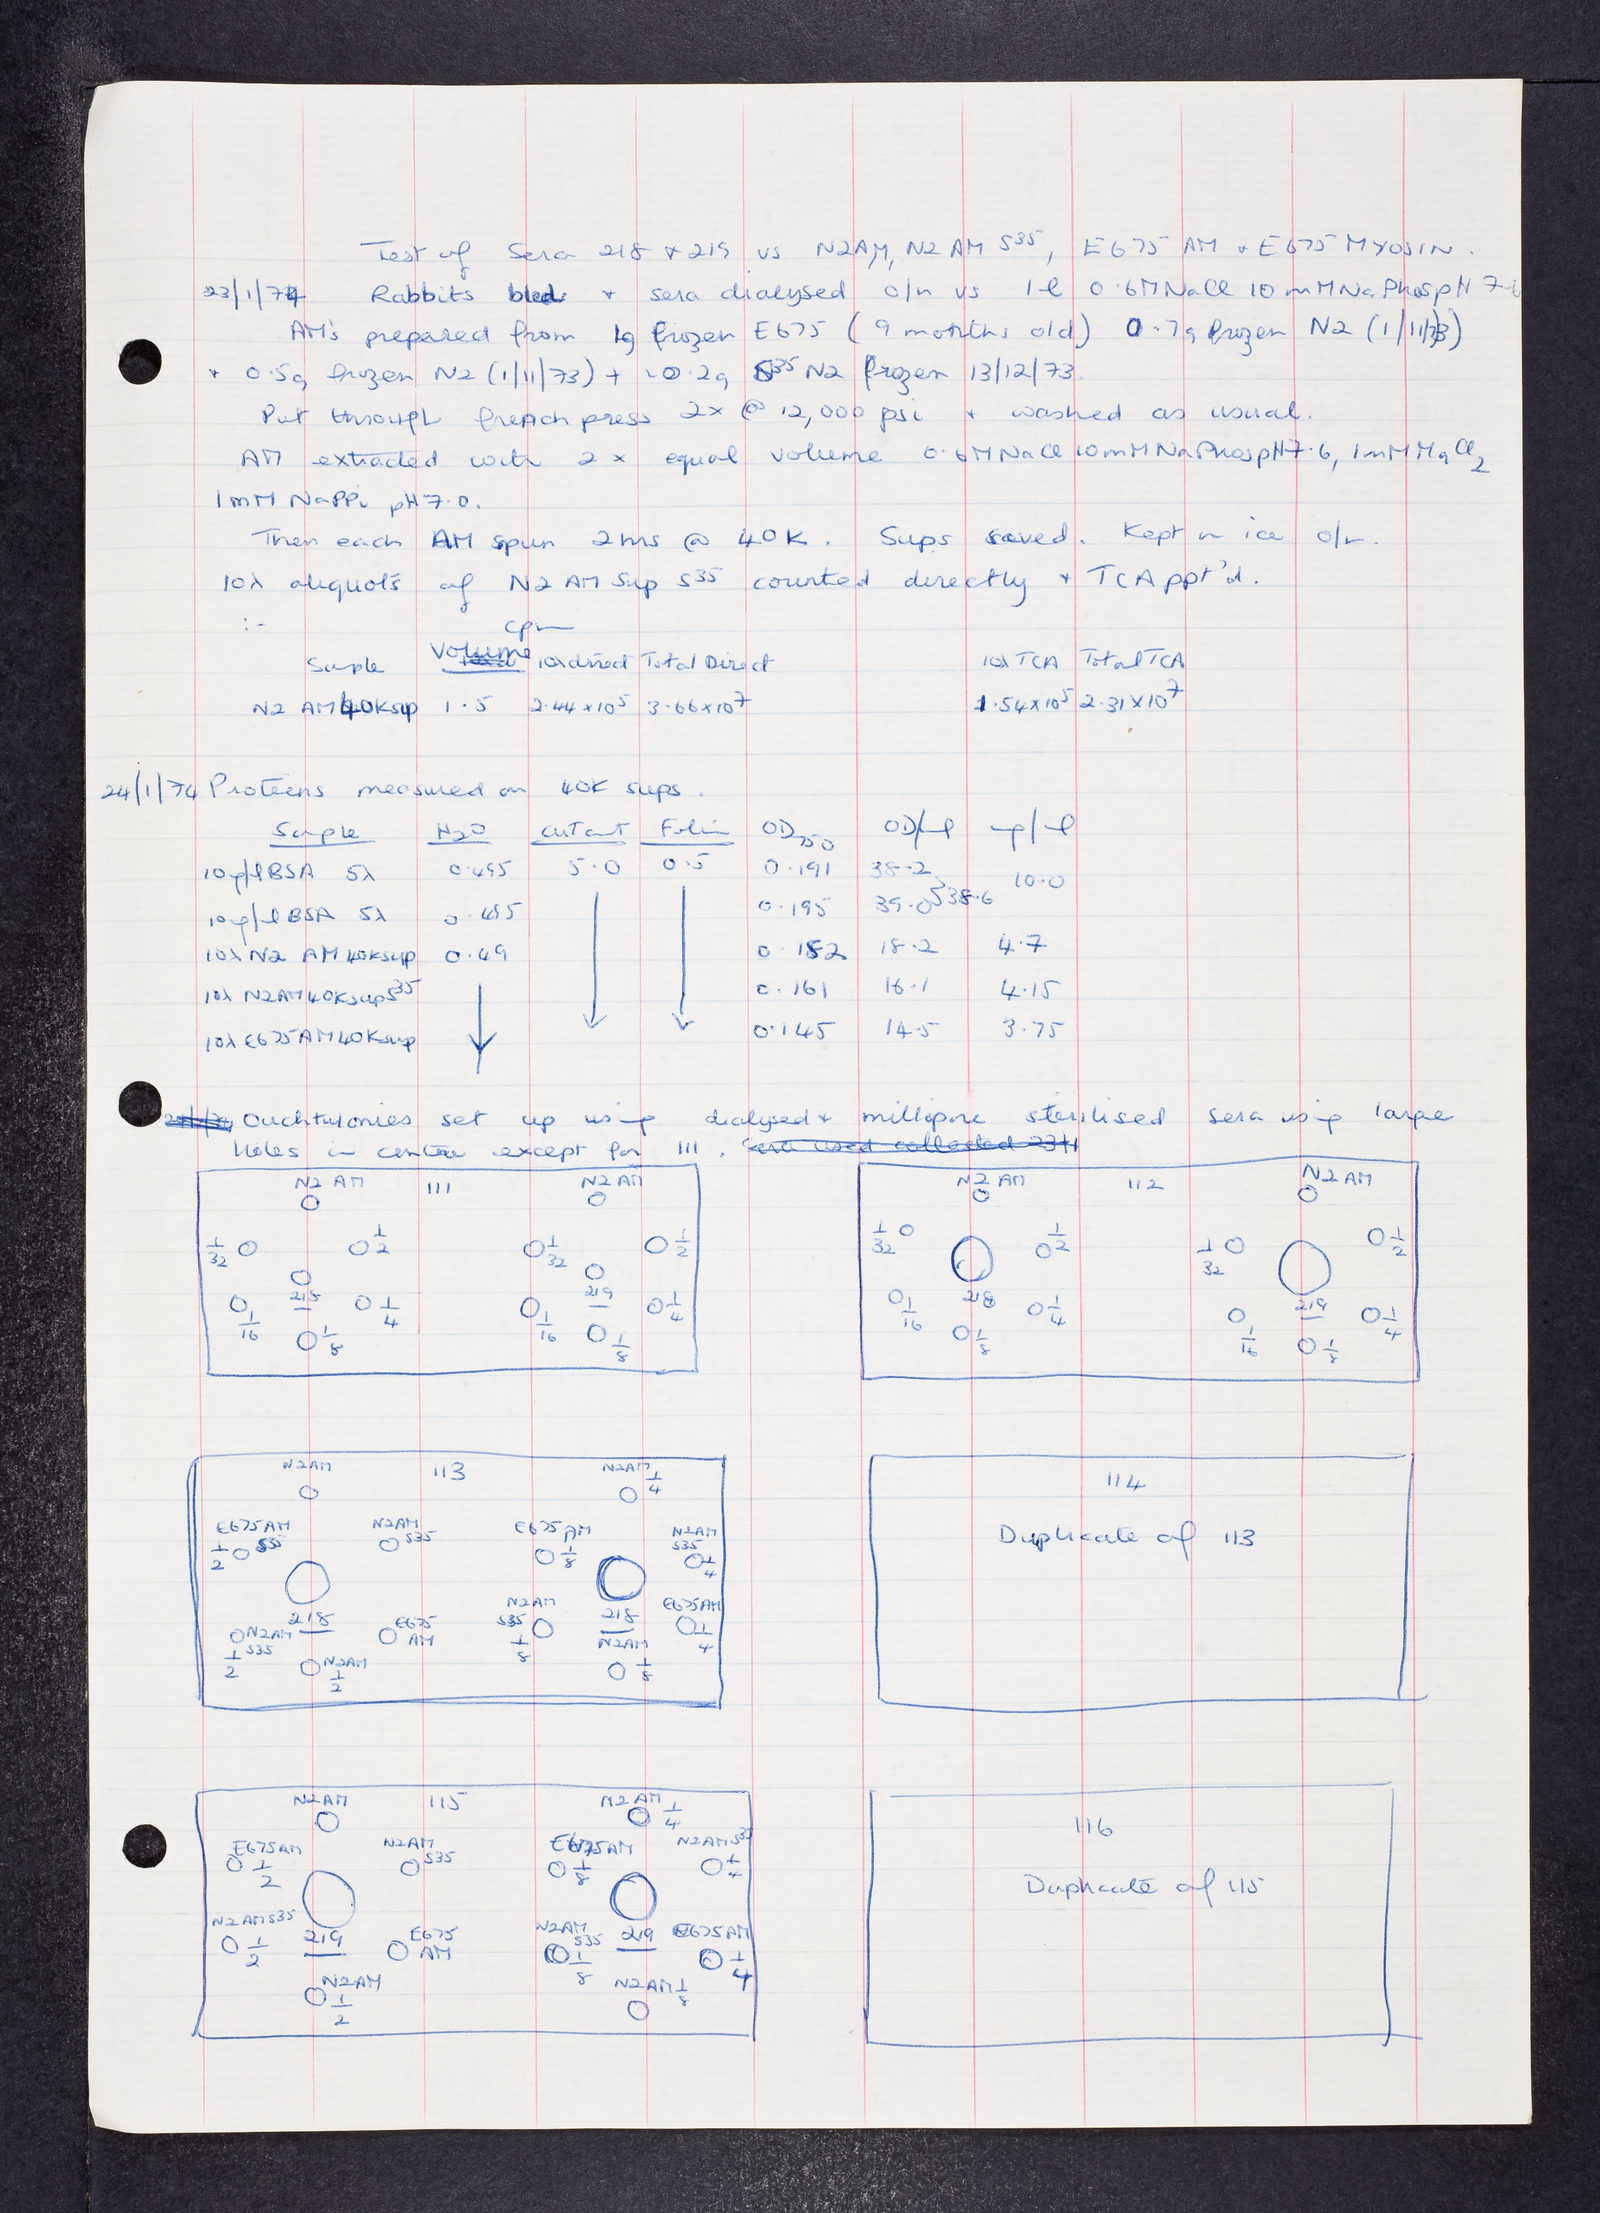 Test of Sera 218 + 219 vs N2AM, N2 AM S35, E675 AM + E675 MYOSIN.
23/1/74 Rabbits bled + sera dialysed o/n vs 1l 0.6M NaCl 10mM NaPhos pH 7.6
AM's prepared from 1g frozen E675 (9 months old) 0.7g frozen N2 (1/11/73)
+ 0.5g frozen N2 (1/11/73) + ~0.2g S35 N2 frozen 13/12/73.
Put through french press 2x @ 12,000 psi + washed as usual.
AM extracted with 2 x equal volume 0.6M NaCl 10mM NaPhos pH 7.6, 1mM MgCl2
1mM NaPPi pH 7.0.
Then each AM spun 2hrs @ 40K. Sups saved. Kept on ice o/n.
10λ aliquots of N2 AM Sup S35 counted directly + TCA ppt'd.
:- cpm
Sample Volume 10λ direct Total Direct 10λ TCA Total TCA
N2 AM 40K sup 1.5 2.44 x 10^5 3.66 x 10^7 1.54 x 10^5 2.31 x 10^7
24/1/74 Proteins measured on 40K sups.
Sample H2O CuTart Folin OD750 OD/ml mg/ml
10mg/ml BSA 5λ 0.495 5.0 0.5 0.191 38.2 10.0
10mg/ml BSA 5λ 0.495 0.195 39.0 } 38.6
10λ N2 AM 40K sup 0.49 0.182 18.2 4.7
10λ N2AM 40K sup S35 0.161 16.1 4.15
10λ E675 AM 40K sup 0.145 14.5 3.75
Ouchtulonies set up using dialysed + millipore sterilised sera using large
holes in centre except for 111.
N2 AM 111 N2 AM
1/32 1/2 1/32 1/2
218 219
1/16 1/4 1/16 1/4
1/8 1/8
N2 AM 112 N2 AM
1/32 1/2 1/32 1/2
218 219
1/16 1/4 1/16 1/4
1/8 1/8
N2AM 113 N2AM 1/4
E675 AM 1/2 N2AM S35 E675 AM 1/8 N2AM S35 1/4
218 218
N2AM S35 1/2 E675 AM N2AM S35 1/8 E675AM 1/4
N2AM 1/2 N2AM 1/8
114
Duplicate of 113
N2AM 115 N2 AM 1/4
E675AM 1/2 N2AM S35 E675AM 1/8 N2AM S35 1/4
219 219
N2AM S35 1/2 E675 AM N2AM S35 1/8 E675AM 1/4
N2AM 1/2 N2AM 1/8
116
Duplicate of 115